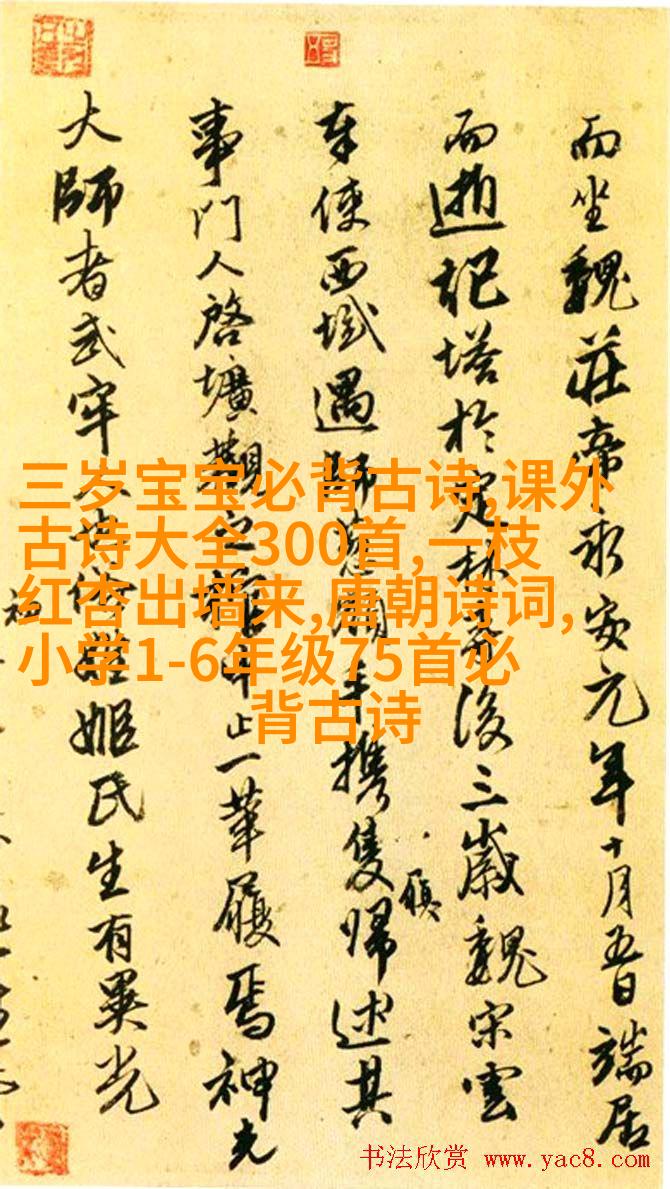 而坐魏莊帝永安元年十月五日端居
而逝記塔於定林寺後三歲魏宋雲
奉使西域遇師手攜隻歸述其
履
事門人啓壙觀之止一革履焉神光
大師者武牢人姬氏生有異光
三岁宝宝必背古诗,课外
古诗大全300首,一枝
红杏出墙来,唐朝诗词,
小学1-6年级75首必
背古诗
书法欣赏 www.yac8.com